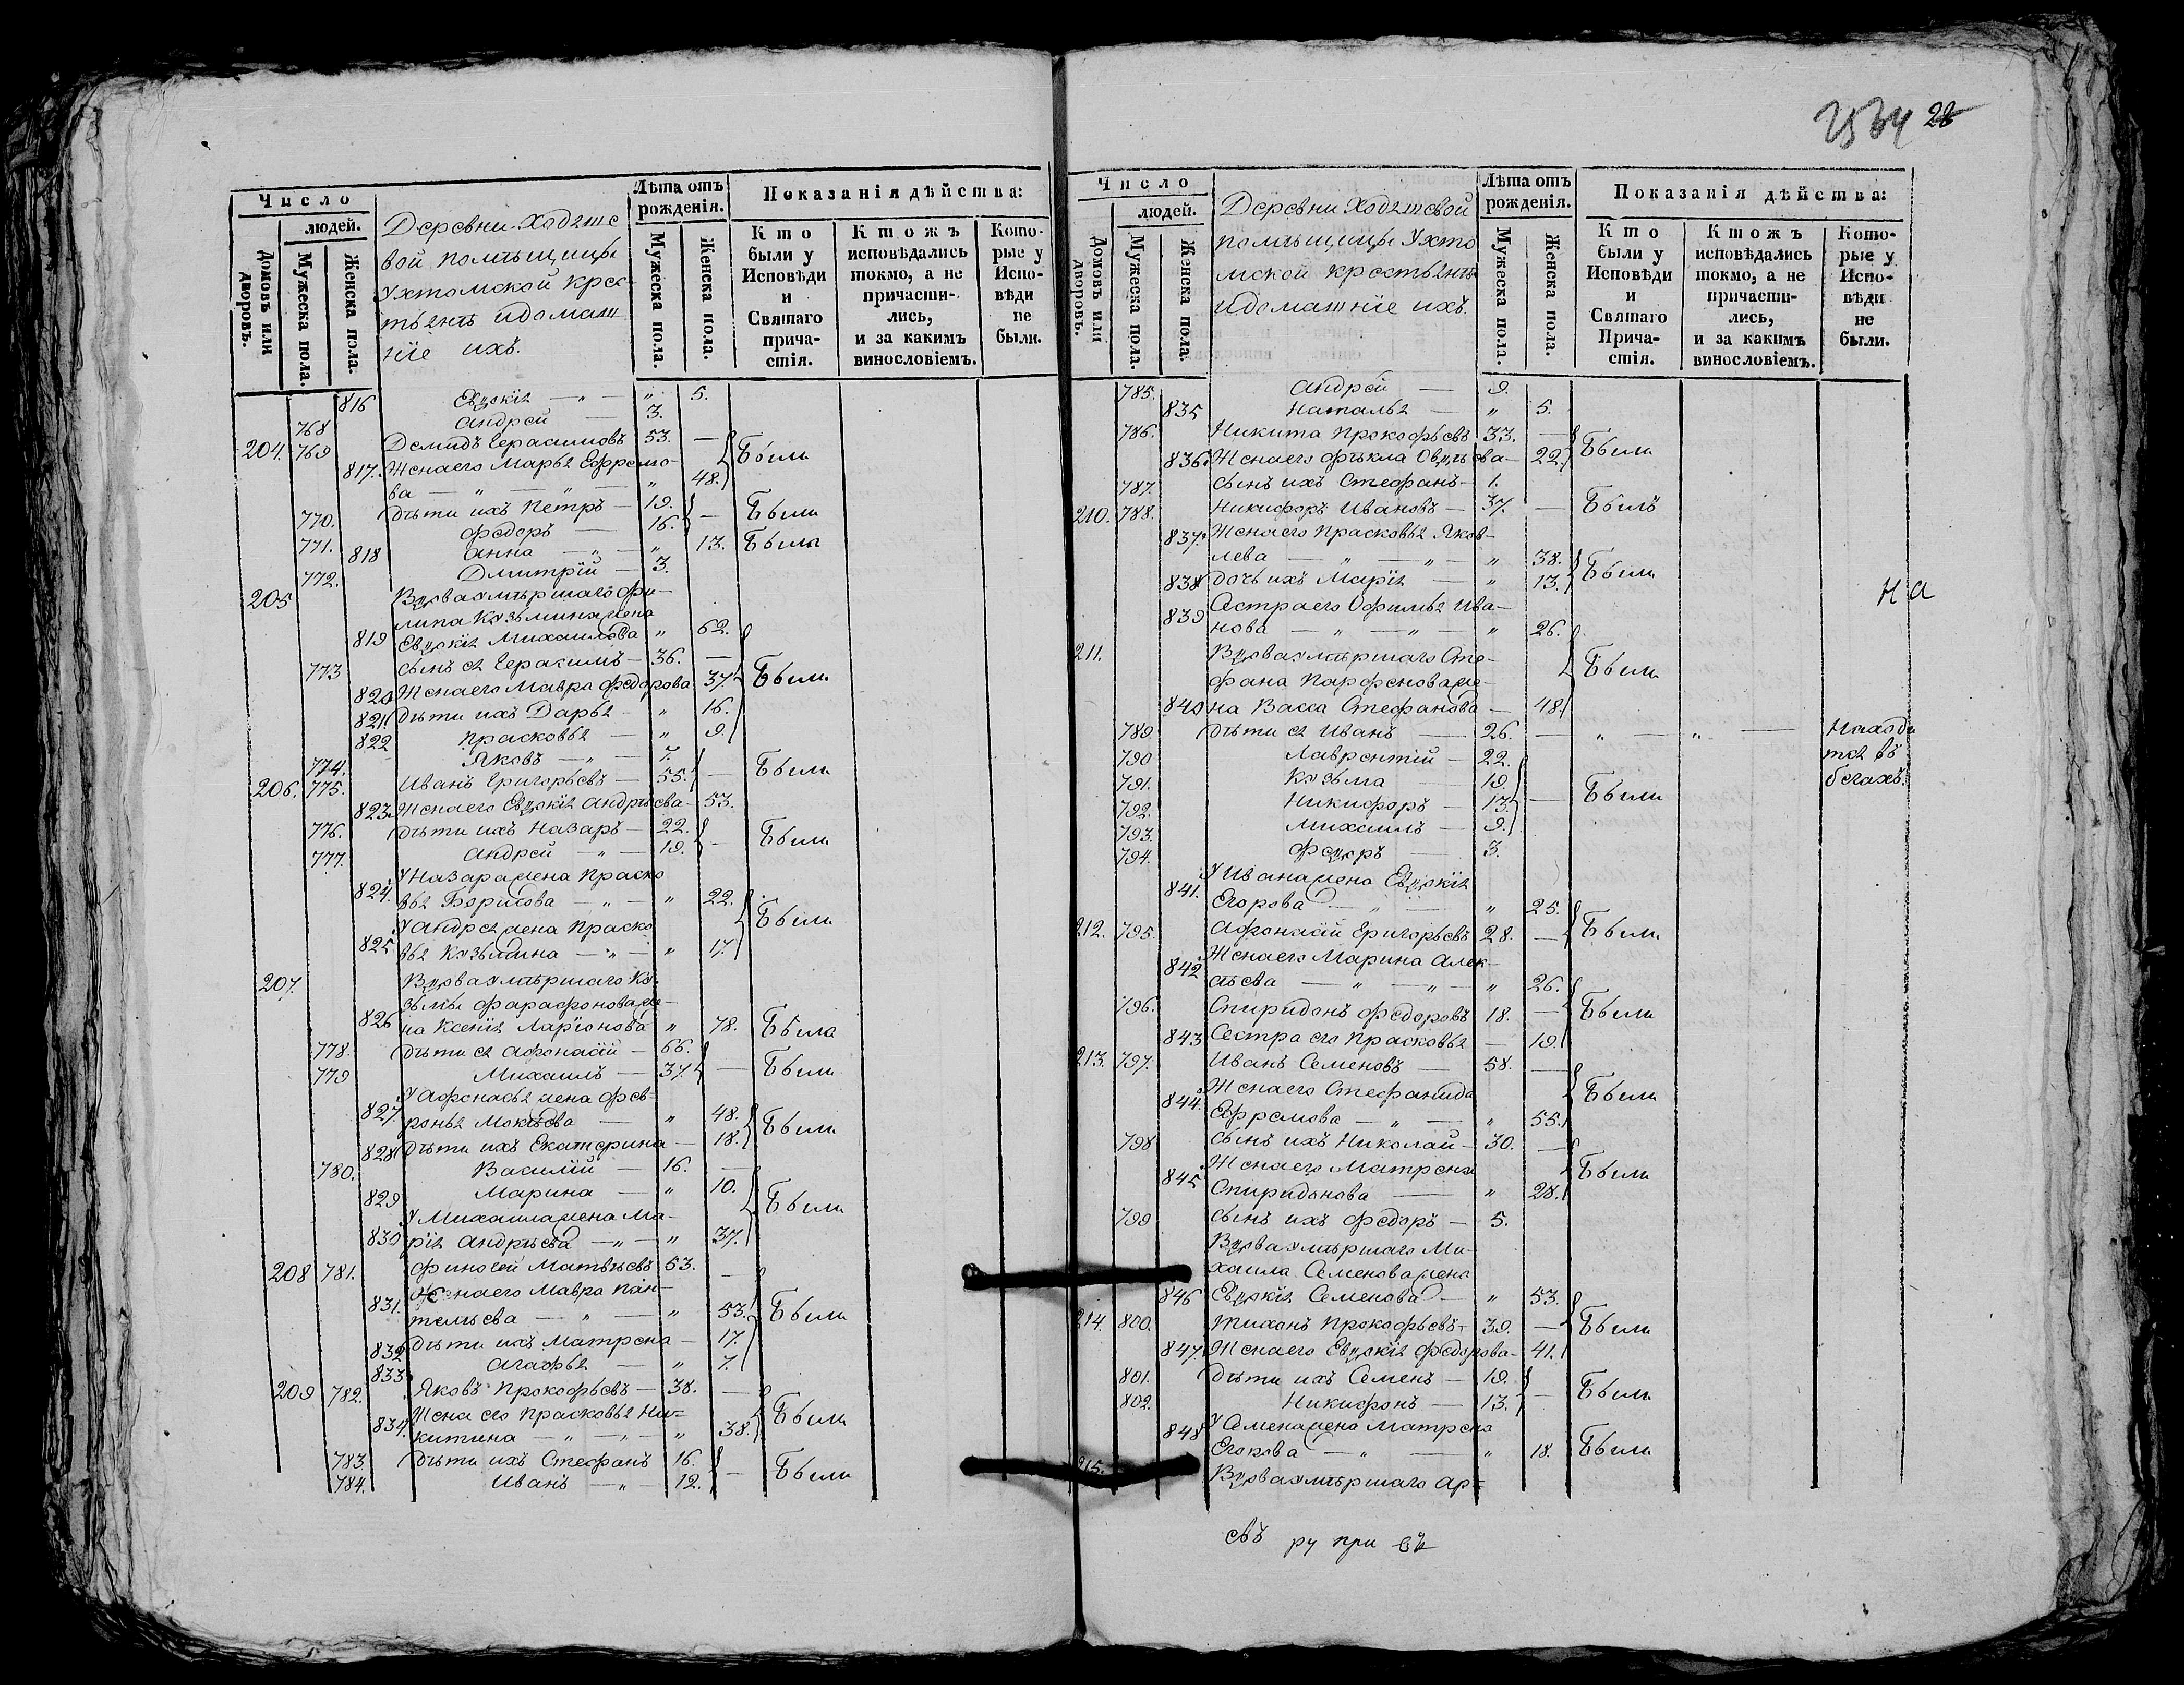 28
Число
людей.
Домовъ или дворовъ.
Мужеска пола.
Женска пола.
Деревни Ходяте
вой помѣщицы
Ухтомской крес
тьянъ идомаш
нїе ихъ.
Лѣта отъ рожденія.
Мужеска пола.
Женска пола.
Показанія дѣйства:
Кто были у Исповѣди и Святаго прича- стія.
Ктожъ исповѣдались токмо, а не причасти- лись, и за какимъ винословіемъ.
Кото- рые у Испо- вѣди не были.
816 Евдокія — „ — „ 5.
768 Андрей — 3.
204. 769 Демидъ Герасимовъ 53. — Были
817. Жена его Марья Ефремо-
ва — „ — „ — „ 48.
770. Дѣти ихъ Петръ — 19. — Были
771. Федоръ — 16.
818 Анна — „ — „ 13. Была
772. Дмитрїй — 3.
205 Вдова умѣршаго Фи-
липа Кузьмина жена
819 Евдокія Михаилова „ 62.
773 Сынъ ея Герасимъ — 36. —
820 Жена его Мавра Федорова 37. Были
821 Дѣти ихъ Дарья — „ 16.
822 Прасковья — „ 9.
774. Яковъ — „ — 7.
206. 775. Иванъ Григорьевъ — 55. — Были
823. Жена его Евдокія Андрѣева — 53.
776. Дѣти ихъ Назаръ — 22. — Были
777. Андрей — „ — 19.
У Назара жена Праско
824. вья Борисова — „ — „ 22.
У Андрея жена Праско Были
825 вья Кузьмина — „ — „ 17.
207. Вдова умѣршаго Ку-
зьмы Фарафонова же-
826 на Ксенїя Ларїонова „ 78. Была
778. Дѣти ея Афонасїй — 66.
779 Михаилъ — 37. — Были
У Афонасья жена Фев-
827. ронья Мокѣева — „ 48. Были
828 Дѣти ихъ Екатерина — 18.
780. Василїй — 16. —
829 Марина — „ 10. Были
У Михаила жена Ма-
830 рїя Андрѣева — „ — „ 37.
208 781. Финогей Матвѣевъ 53. —
Жена его Мавра Пан-
831. телѣева — „ — „ 53. Были
832 Дѣти ихъ Матрена — 17.
833 Агафья — „ 7.
209 782. Яковъ Прокофьевъ — 38. —
Жена его Прасковья Ни- Были
834. китина — „ — „ — „ 38.
783 Дѣти ихъ Стефанъ 16. — Были
784. Иванъ — „ — 12.
Число
людей.
Домовъ или дворовъ.
Мужеска пола.
Женска пола.
Деревни Ходятевой
помѣщицы Ухто
мской крестьянъ
идомашнїе ихъ.
Лѣта отъ рожденія.
Мужеска пола.
Женска пола.
Показанія дѣйства:
Кто были у Исповѣди и Святаго Прича- стія.
Ктожъ исповѣдались токмо, а не причасти- лись, и за какимъ винословіемъ.
Кото- рые у Испо- вѣди не были.
785. Андрей — 9.
835 Наталья — „ 5.
786. Никита Прокофьевъ 33. — Были
836. Жена его Фѣкла Овдѣева — 22.
787. Сынъ ихъ Стефанъ — 1.
210. 788. Никифоръ Ивановъ — 37. — Былъ
837. Жена его Прасковья Яков-
лева — „ — „ — „ 38. Были
838 Дочь ихъ Марїя — „ 13.
На
Сестра его Офимья Ива-
839 нова — „ — „ — „ 26.
211. Вдова умѣршаго Сте- Были
фана Парфенова же-
840 на Васса Стефанова — 48.
789. Дѣти ея Иванъ — 26. — „ — „ — Находи
790 Лаврентїй — 22. тся въ
791. Кузьма — 19. бегахъ.
792. Никифоръ — 13. — Были
793. Михаилъ — 9.
794. Федоръ — 3.
У Ивана жена Евдокїя
841. Егорова — „ — „ 25.
212. 795. Афонасїй Григорьевъ 28. — Были
Жена его Марина Алек-
842 сѣева — „ — „ — „ 26.
796. Спиридонъ Федоровъ 18. — Были
843 Сестра его Прасковья — 19.
213. 797. Иванъ Семеновъ — 58. —
Жена его Стефанида Были
844. Ефремова — „ — „ 55.
798 Сынъ ихъ Николай — 30. —
Жена его Матрена Были
845 Спиридонова — „ 28.
799 Сынъ ихъ Федоръ — 5.
Вдова умѣршаго Ми-
хаила Семенова жена
846 Евдокїя Семенова — „ 53.
214. 800. Тихонъ Прокофьевъ — 39. — Были
847. Жена его Евдокїя Федорова — 41.
801. Дѣти ихъ Семенъ — 19. — Были
802. Никифонъ — 13.
У Семена жена Матрена
848 Егорова — „ — „ 18. Были
215. Вдова умѣршаго Ар-
свъ ру при